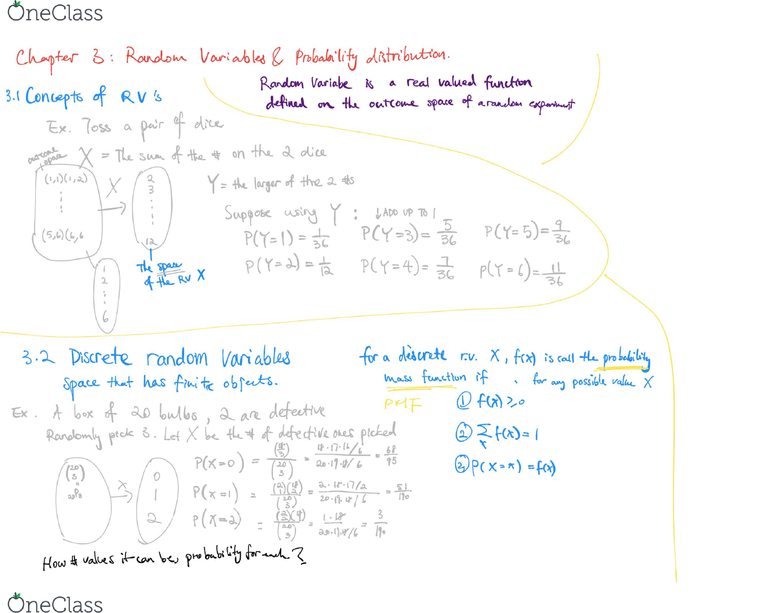 OneClass
Chapter 3: Random Variables & Probability distribution.
Random Variabe is a real valued function
defined on the outcome space of a random experiment
3.1 Concepts of RV's
Ex. Toss a pair of dice
outcome space
X = The sum of the # on the 2 dice
(1,1)(1,2)
X
2
3
Y = the larger of the 2 #s
Suppose using Y: ↓ADD UP TO 1
P(Y=1) = 1/36 P(Y=3) = 5/36 P(Y=5) = 9/36
(5,6)(6,6
12
P(Y=2) = 1/12 P(Y=4) = 7/36 P(Y=6) = 11/36
The space
of the RV X
1
2
6
3.2 Discrete random Variables
space that has finite objects.
for a discrete r.v. X, f(x) is call the probability
mass function if for any possible value X
PMF
① f(x) ≥0
② Σx f(x) = 1
③ P(X=x) = f(x)
Ex. A box of 20 bulbs, 2 are defective
Randomly pick 3. Let X be the # of defective ones picked
(20 3)
X
0
1
2
P(X=0) = (18 3)/(20 3) = 18·17·16/6 / 20·19·18/6 = 68/95
P(X=1) = (2 1)(18 2)/(20 3) = 2·18·17/2 / 20·19·18/6 = 51/190
P(X=2) = (2 2)(18 1)/(20 3) = 1·18 / 20·19·18/6 = 3/190
How # values it can be, probability for each?
OneClass